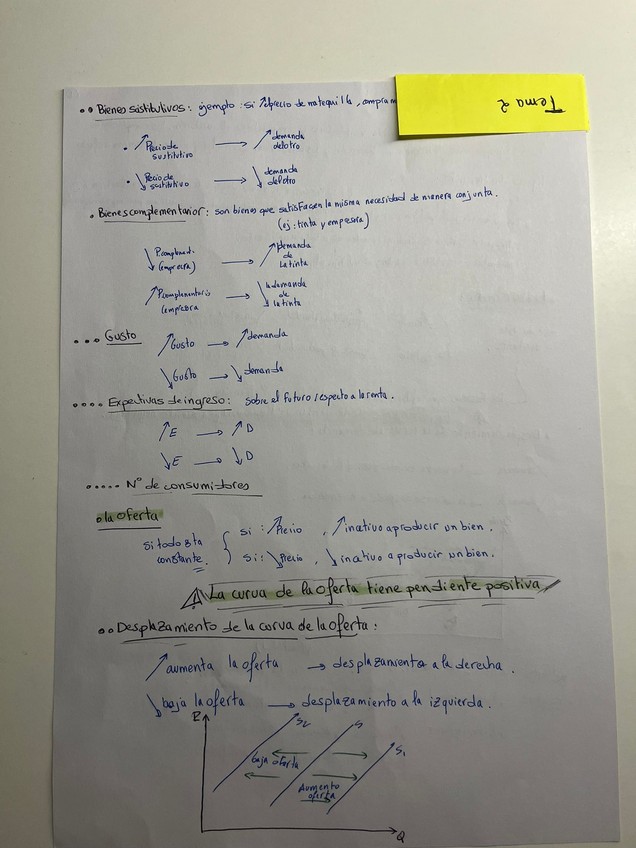 Tema 2
Bienes sustitutivos: ejemplo: si ↗ el precio de mategui lla, compram
• ↗ Precio de sustitutivo → ↗ demanda del otro
• ↘ Precio de sustitutivo → ↘ demanda del otro
• Bienes complementarior: son bienes que satisfacen la misma necesidad de manera conjunta.
(ej: tinta y empresora)
↘ → ↗ demanda de la tinta
↗ P complementario → ↘ demanda de la tinta
Gusto
↗ Gusto → ↗ demanda
↘ Gusto → ↘ demanda
Expectivas de ingreso: sobre el futuro respecto a la renta.
↗ E → ↗ D
↘ E → ↘ D
Nº de consumidores
la oferta
si todo sta constante.
{ si: ↗ Precio, ↗ incativo a producir un bien.
si: ↘ Precio, ↘ incativo a producir un bien.
⚠ La curva de la oferta tiene pendiente positiva
Desplazamiento de la curva de la oferta:
↗ aumenta la oferta → desplazamiento a la derecha.
↘ baja la oferta → desplazamiento a la izquierda.
P
S2
S
S1
baja oferta
Aumento oferta
Q